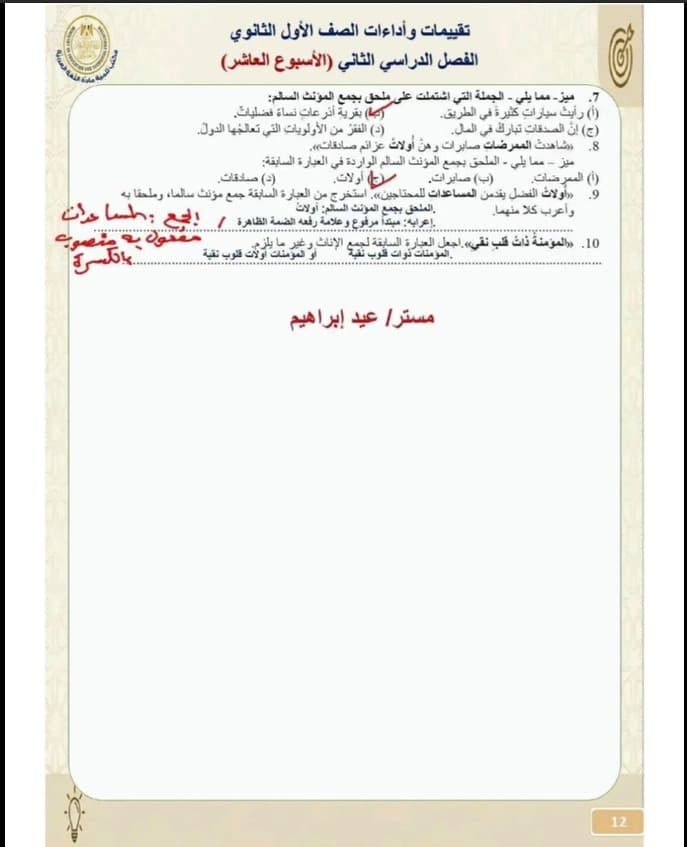 تقييمات وأداءات الصف الأول الثانوي
الفصل الدراسي الثاني (الأسبوع العاشر)
7. ميز- مما يلي - الجملة التي اشتملت على ملحق بجمع المؤنث السالم:
(أ) رأيتُ سياراتٍ كثيرةً في الطريق. (ب) بقريةِ أذرعاتٍ نساءٌ فضلياتٌ.
(ج) إنَّ الصدقاتِ تباركُ في المال. (د) الفقرُ من الأولوياتِ التي تعالجُها الدولُ.
8. «شاهدتُ الممرضاتِ صابرات وهنَّ أُولاتُ عزائم صادقات».
ميز – مما يلي - الملحق بجمع المؤنث السالم الواردة في العبارة السابقة:
(أ) الممرضات. (ب) صابرات. (ج) أولات. (د) صادقات.
9. «أولاتُ الفضل يقدمن المساعدات للمحتاجين». استخرج من العبارة السابقة جمع مؤنث سالما، وملحقا به
وأعرب كلا منهما. الملحق بجمع المؤنث السالم: أولاتُ
إعرابه: مبتدأ مرفوع وعلامة رفعه الضمة الظاهرة.
/ الجمع: المساعدات
مفعول به منصوب
بالكسرة
10. «المؤمنةُ ذاتُ قلبٍ نقي». اجعل العبارة السابقة لجمع الإناث وغير ما يلزم.
المؤمنات ذوات قلوب نقية. أو المؤمنات أولات قلوب نقية
مستر/ عيد إبراهيم
12